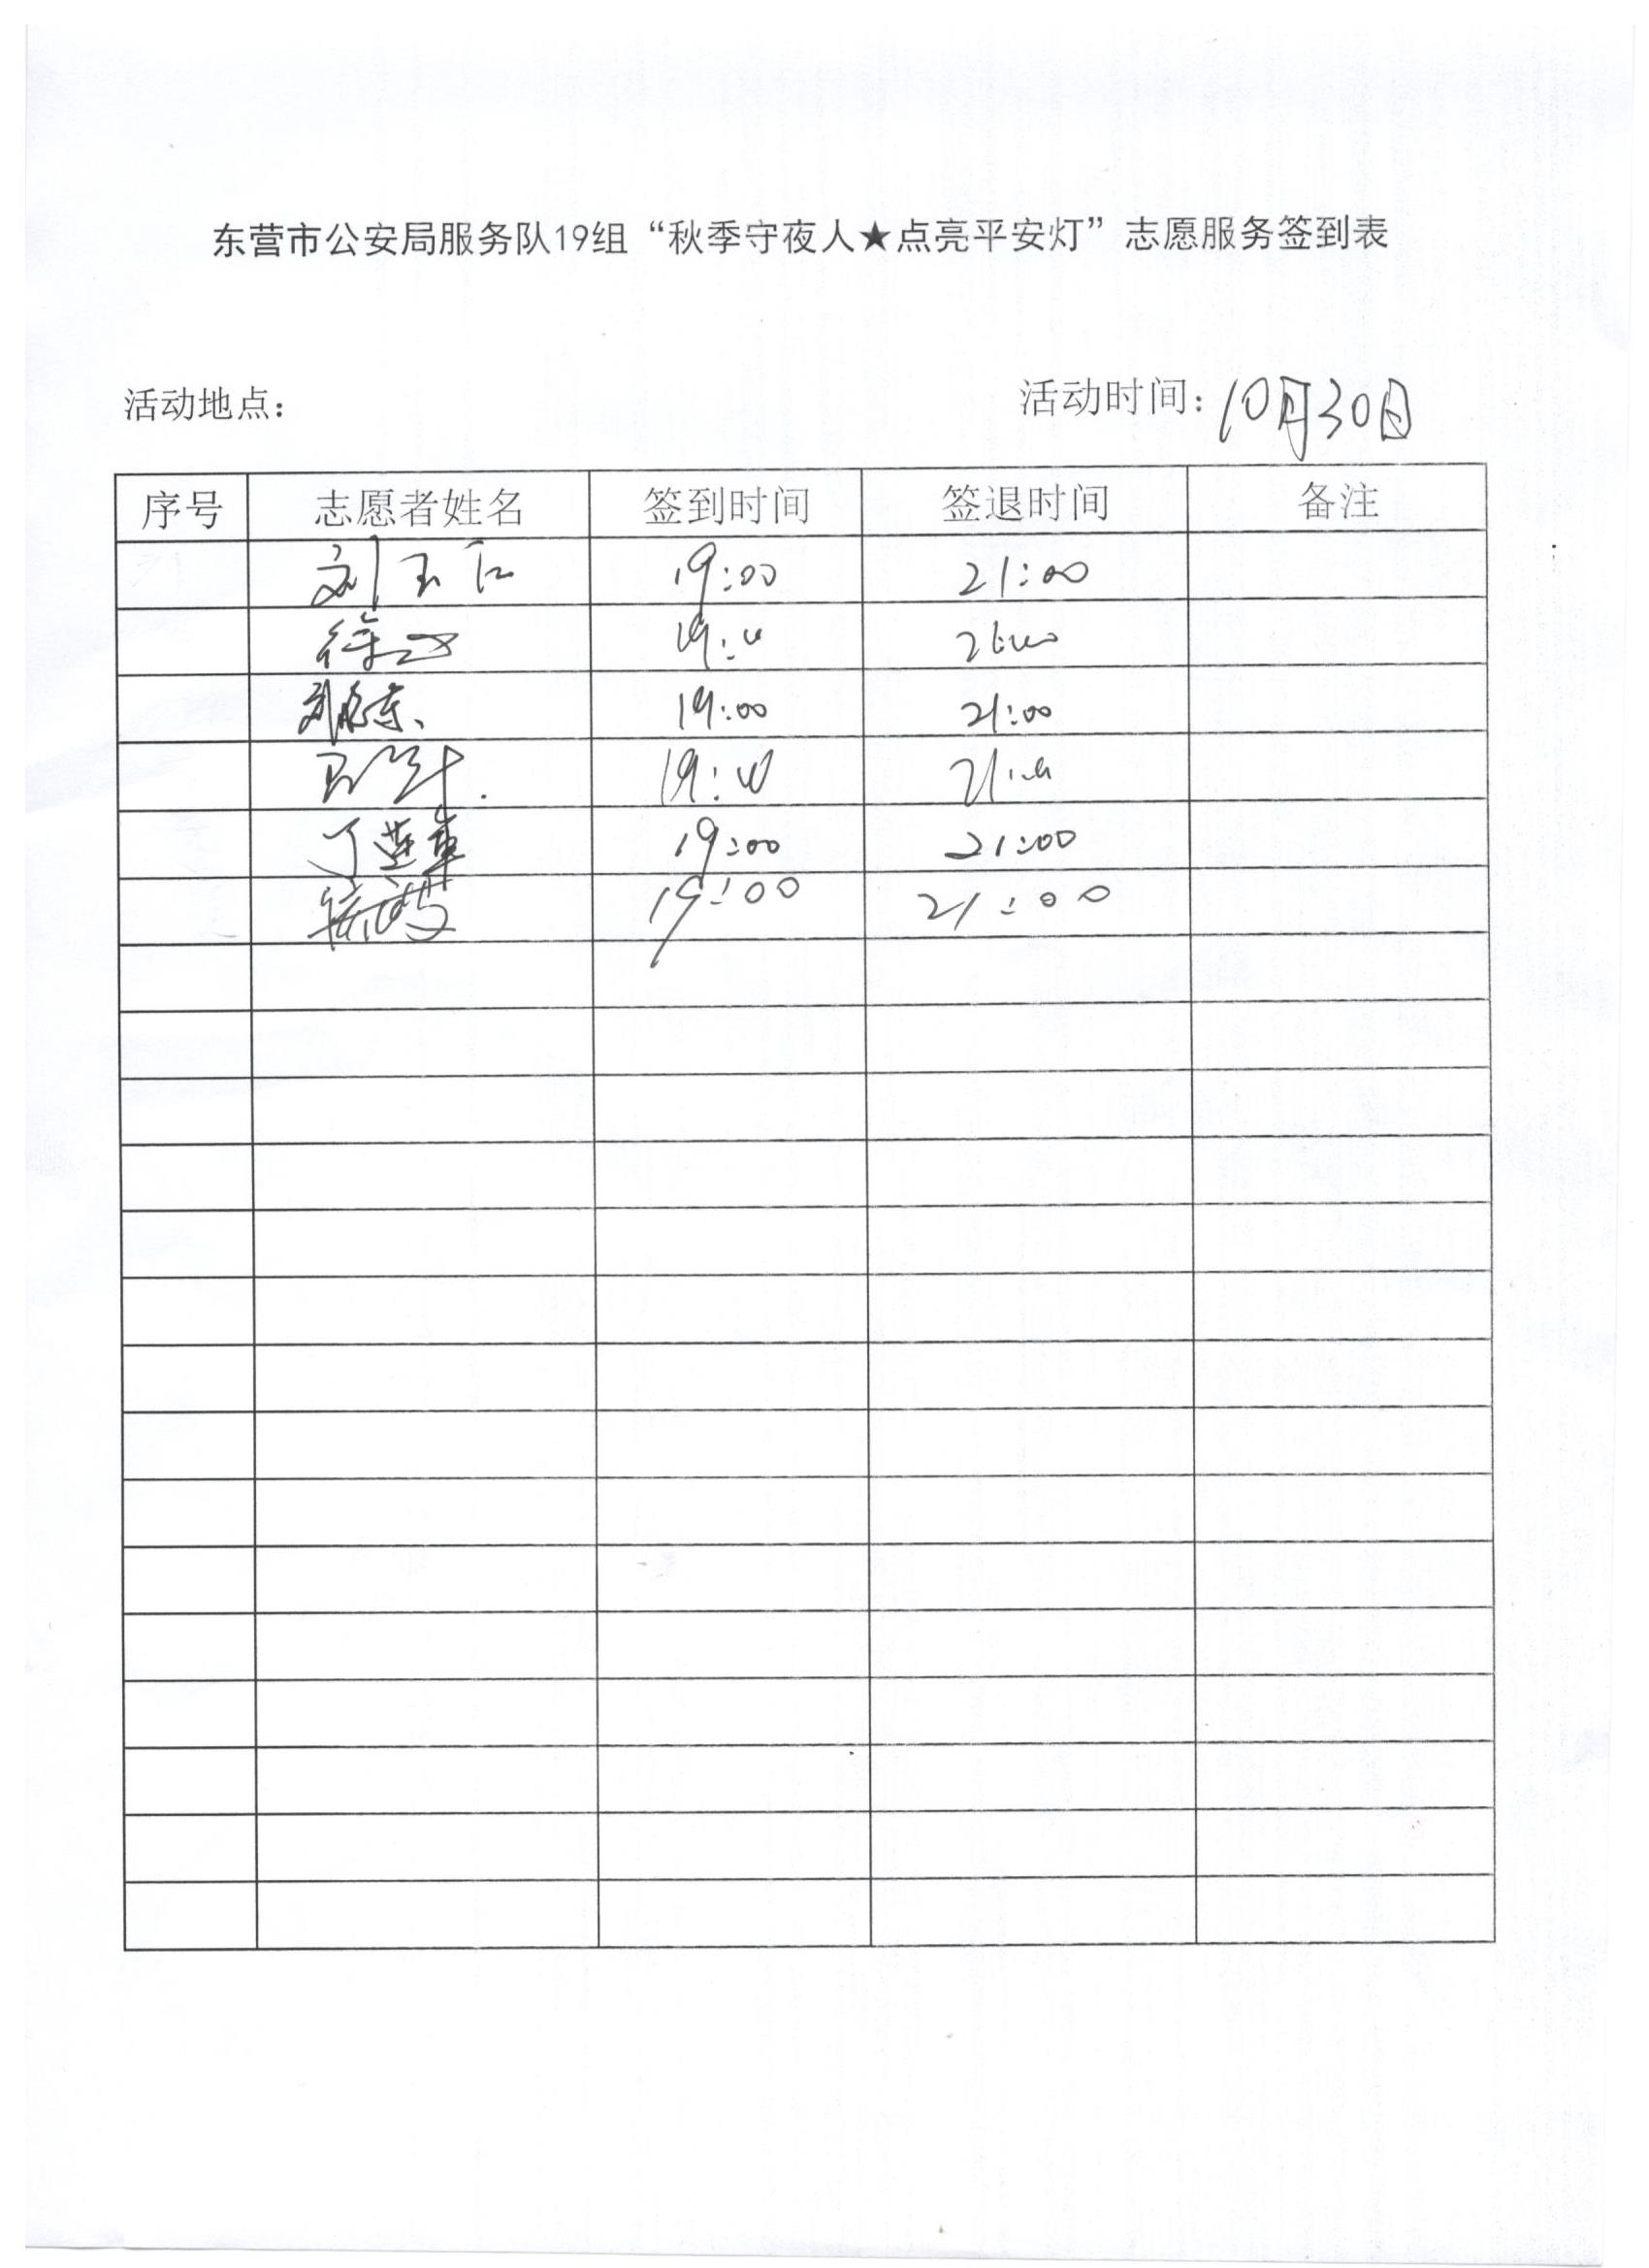 东营市公安局服务队19组“秋季守夜人★点亮平安灯”志愿服务签到表
活动地点： 活动时间：10月30日
序号 志愿者姓名 签到时间 签退时间 备注
刘玉仁 19:00 21:00
徐
19:00 21:00
丁莲军 19:00 21:00
19:00 21:00